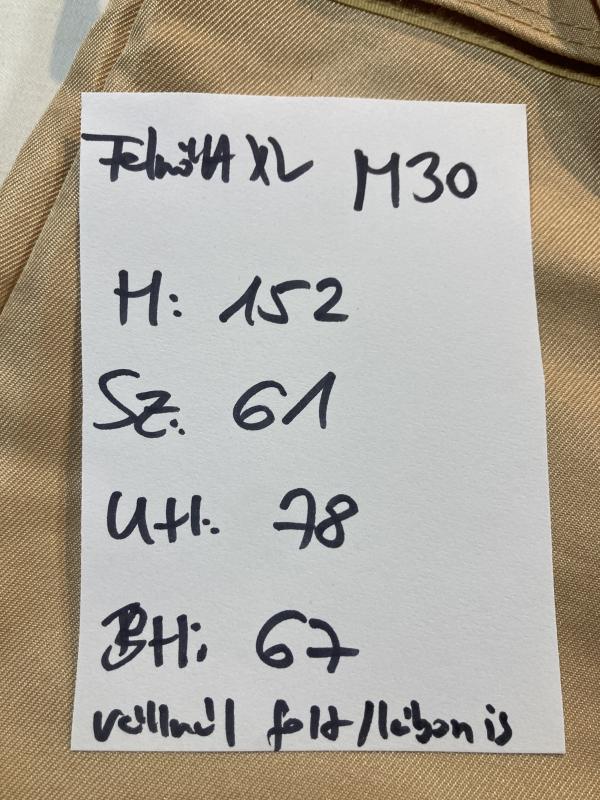 Felnőtt XL M30
H: 152
SZ: 61
UH: 78
BH: 67
vállnál folt/lábon is